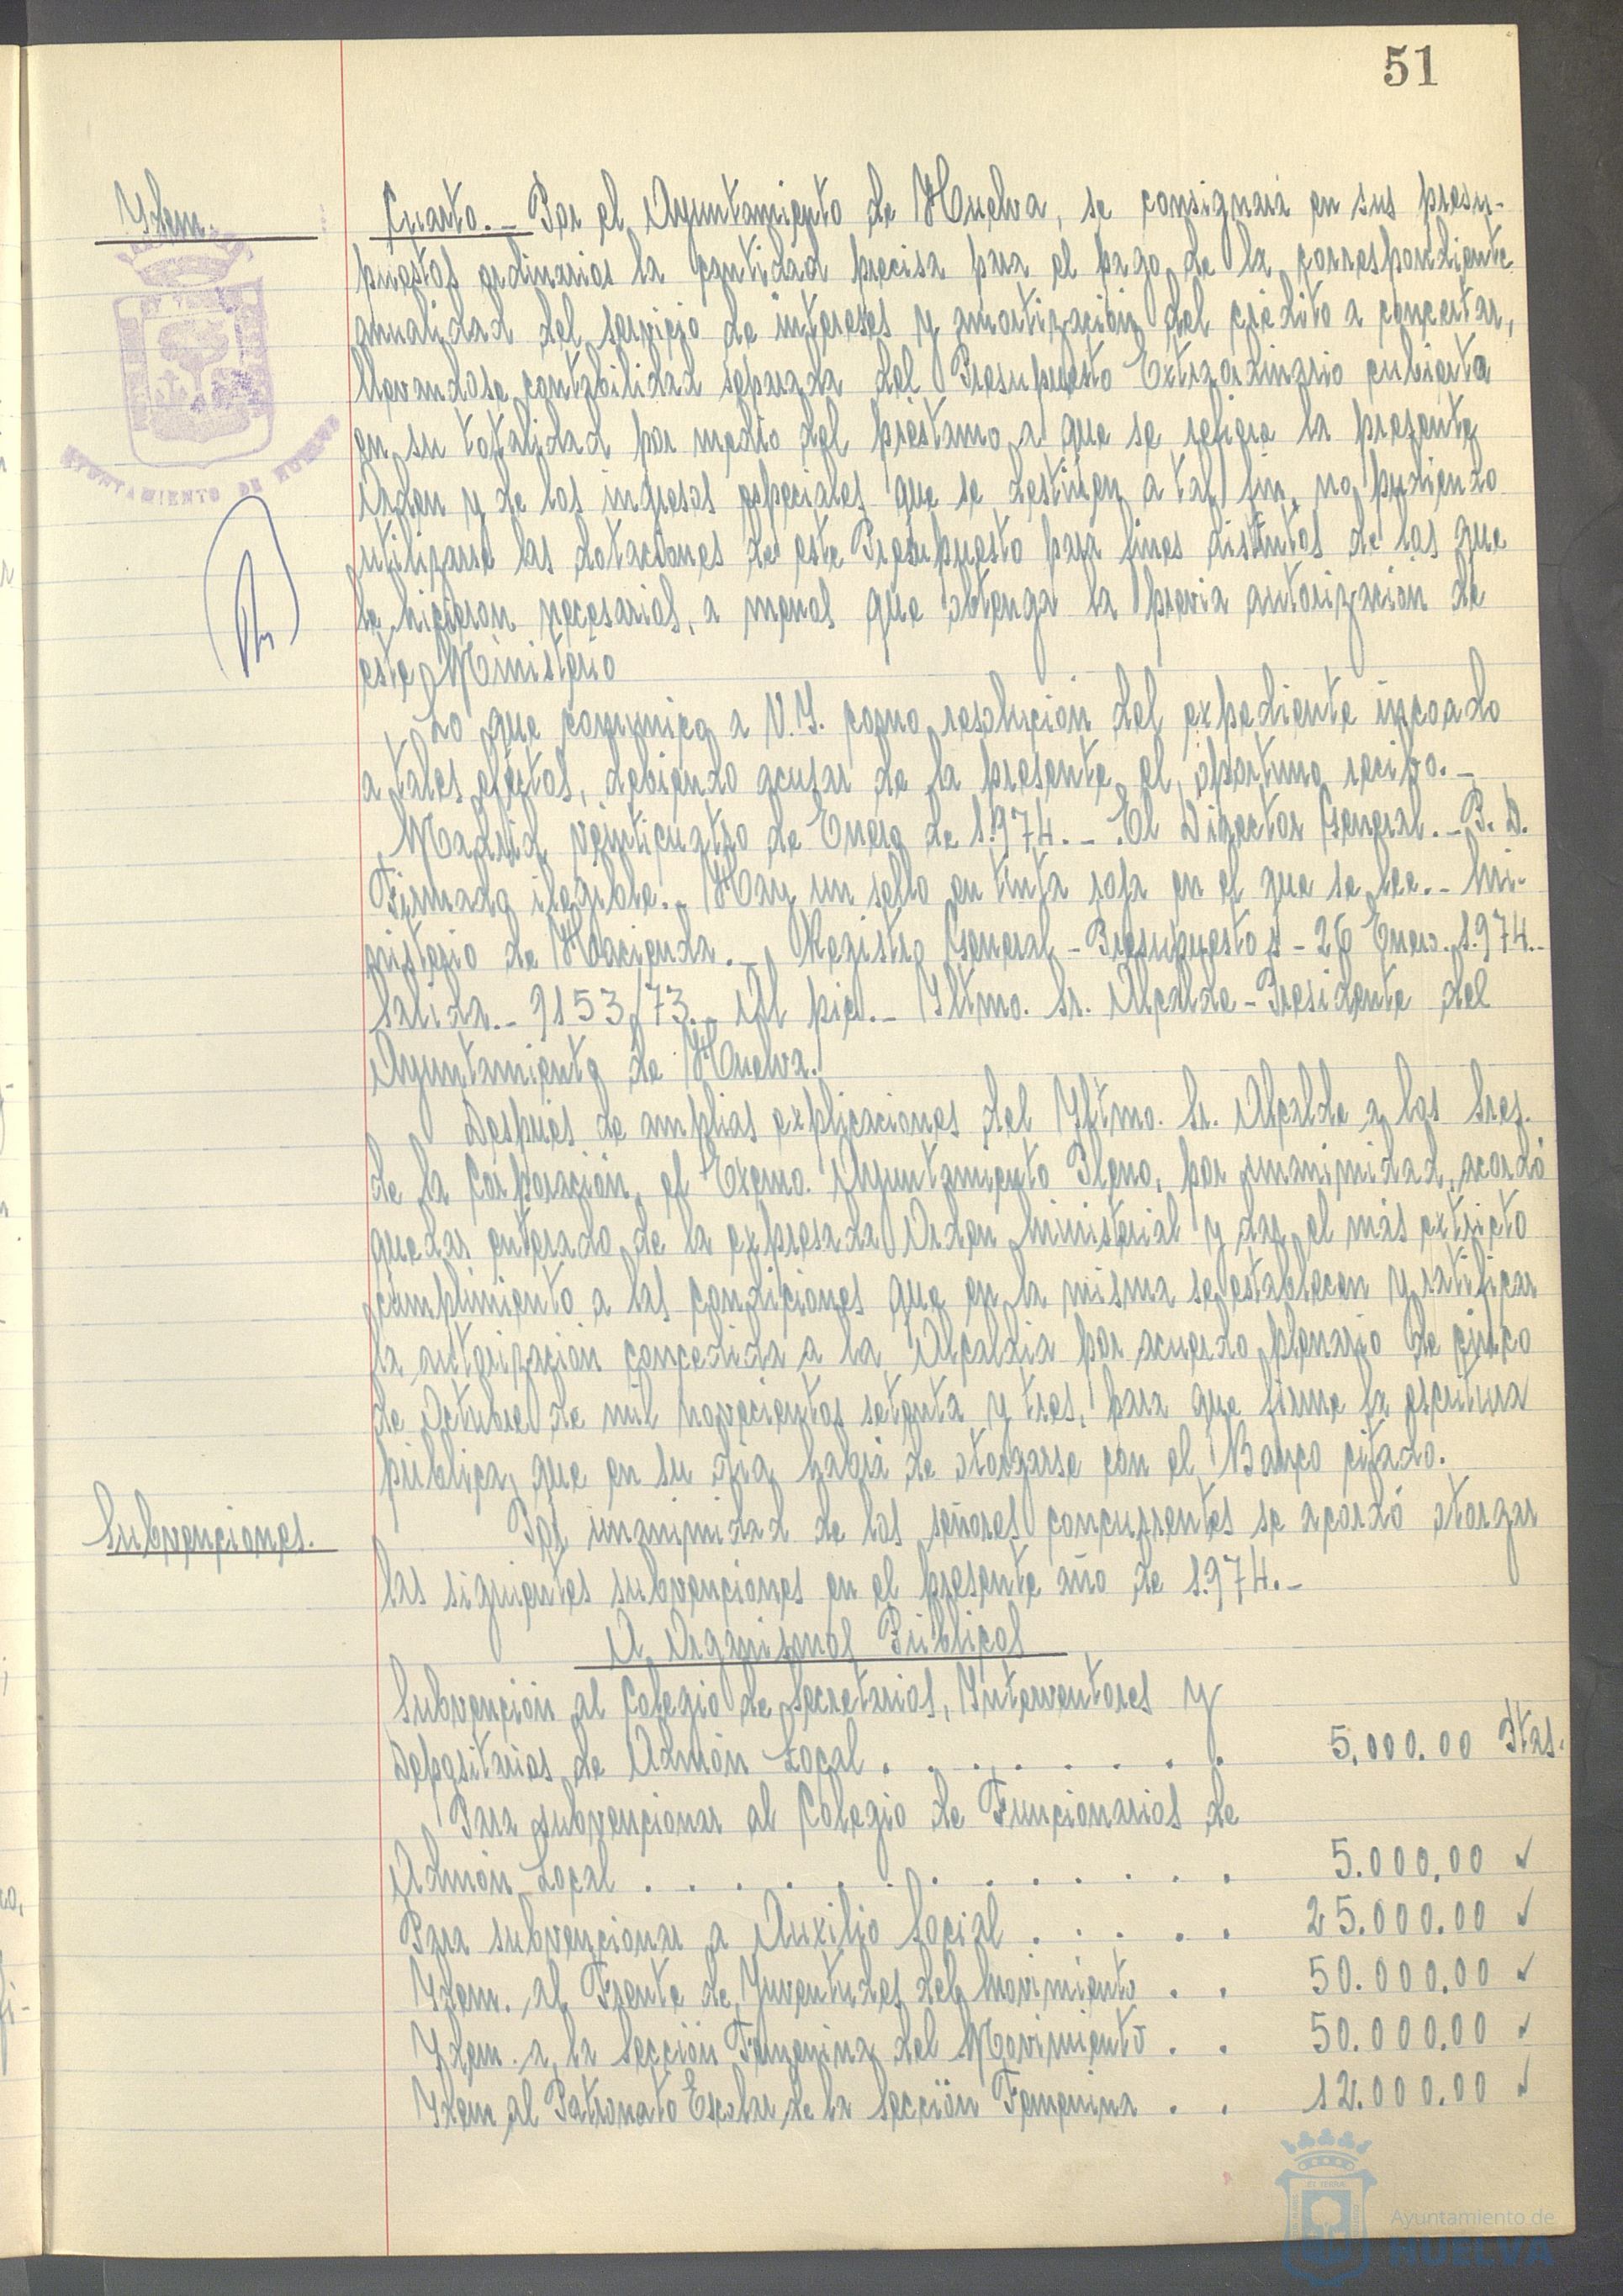 51
Ydem.
Cuarto.- Por el Ayuntamiento de Huelva, se consignará en sus presu-
puestos ordinarios la cantidad precisa para el pago de la correspondiente
anualidad del servicio de intereses y amortización del crédito a concertar,
llevandose contabilidad separada del Presupuesto Extraordinario cubierta
en su totalidad por medio del préstamo a que se refiere la presente
Orden y de los ingresos especiales que se destinen a tal fin, no pudiendo
utilizarse las dotaciones de este Presupuesto para fines distintos de los que
le hicieron necesarios, a menos que obtenga la previa autorización de
este Ministerio
Lo que comunico a V.Y. como resolución del expediente incoado
a tales efectos, debiendo acusar de la presente el oportuno recibo.-
Madrid, veinticuatro de Enero de 1.974.- El Director General.- P. D.
Firmado ilegible.- Hay un sello en tinta roja en el que se lee.- Mi-
nisterio de Hacienda.- Registro General - Presupuestos - 26 Enero. 1.974.-
Salida.- 9153/73.- Al pie.- Yltmo. Sr. Alcalde-Presidente del
Ayuntamiento de Huelva.
Después de amplias explicaciones del Yltmo. Sr. Alcalde a los Sres.
de la Corporación, el Excmo. Ayuntamiento Pleno, por unanimidad, acordó
quedar enterado de la expresada Orden Ministerial y dar el más extricto
cumplimiento a las condiciones que en la misma se establecen y ratificar
la autorización concedida a la Alcaldia por acuerdo plenario de cinco
de Octubre de mil novecientos setenta y tres, para que firme la escritura
pública, que en su día habrá de otorgarse con el Banco citado.
Subvenciones.
Por unanimidad de los señores concurrentes se acordó otorgar
las siguientes subvenciones en el presente año de 1.974.-
A Organismos Públicos
Subvención al Colegio de Secretarios, Ynterventores y
Depositarios de Admón Local . . . . . . . . 5.000.00 Ptas.
Para subvencionar al Colegio de Funcionarios de
Admón Local . . . . . . . . . . . . . 5.000,00 ✓
Para subvencionar a Auxilio Social . . . . . 25.000.00 ✓
Ydem. al Frente de Yuventudes del Movimiento . . 50.000.00 ✓
Ydem. a la Sección Femenina del Movimiento . . 50.000.00 ✓
Ydem al Patronato Escolar de la Sección Femenina . . 12.000.00 ✓
AYUNTAMIENTO DE HUELVA
Ayuntamiento de
HUELVA